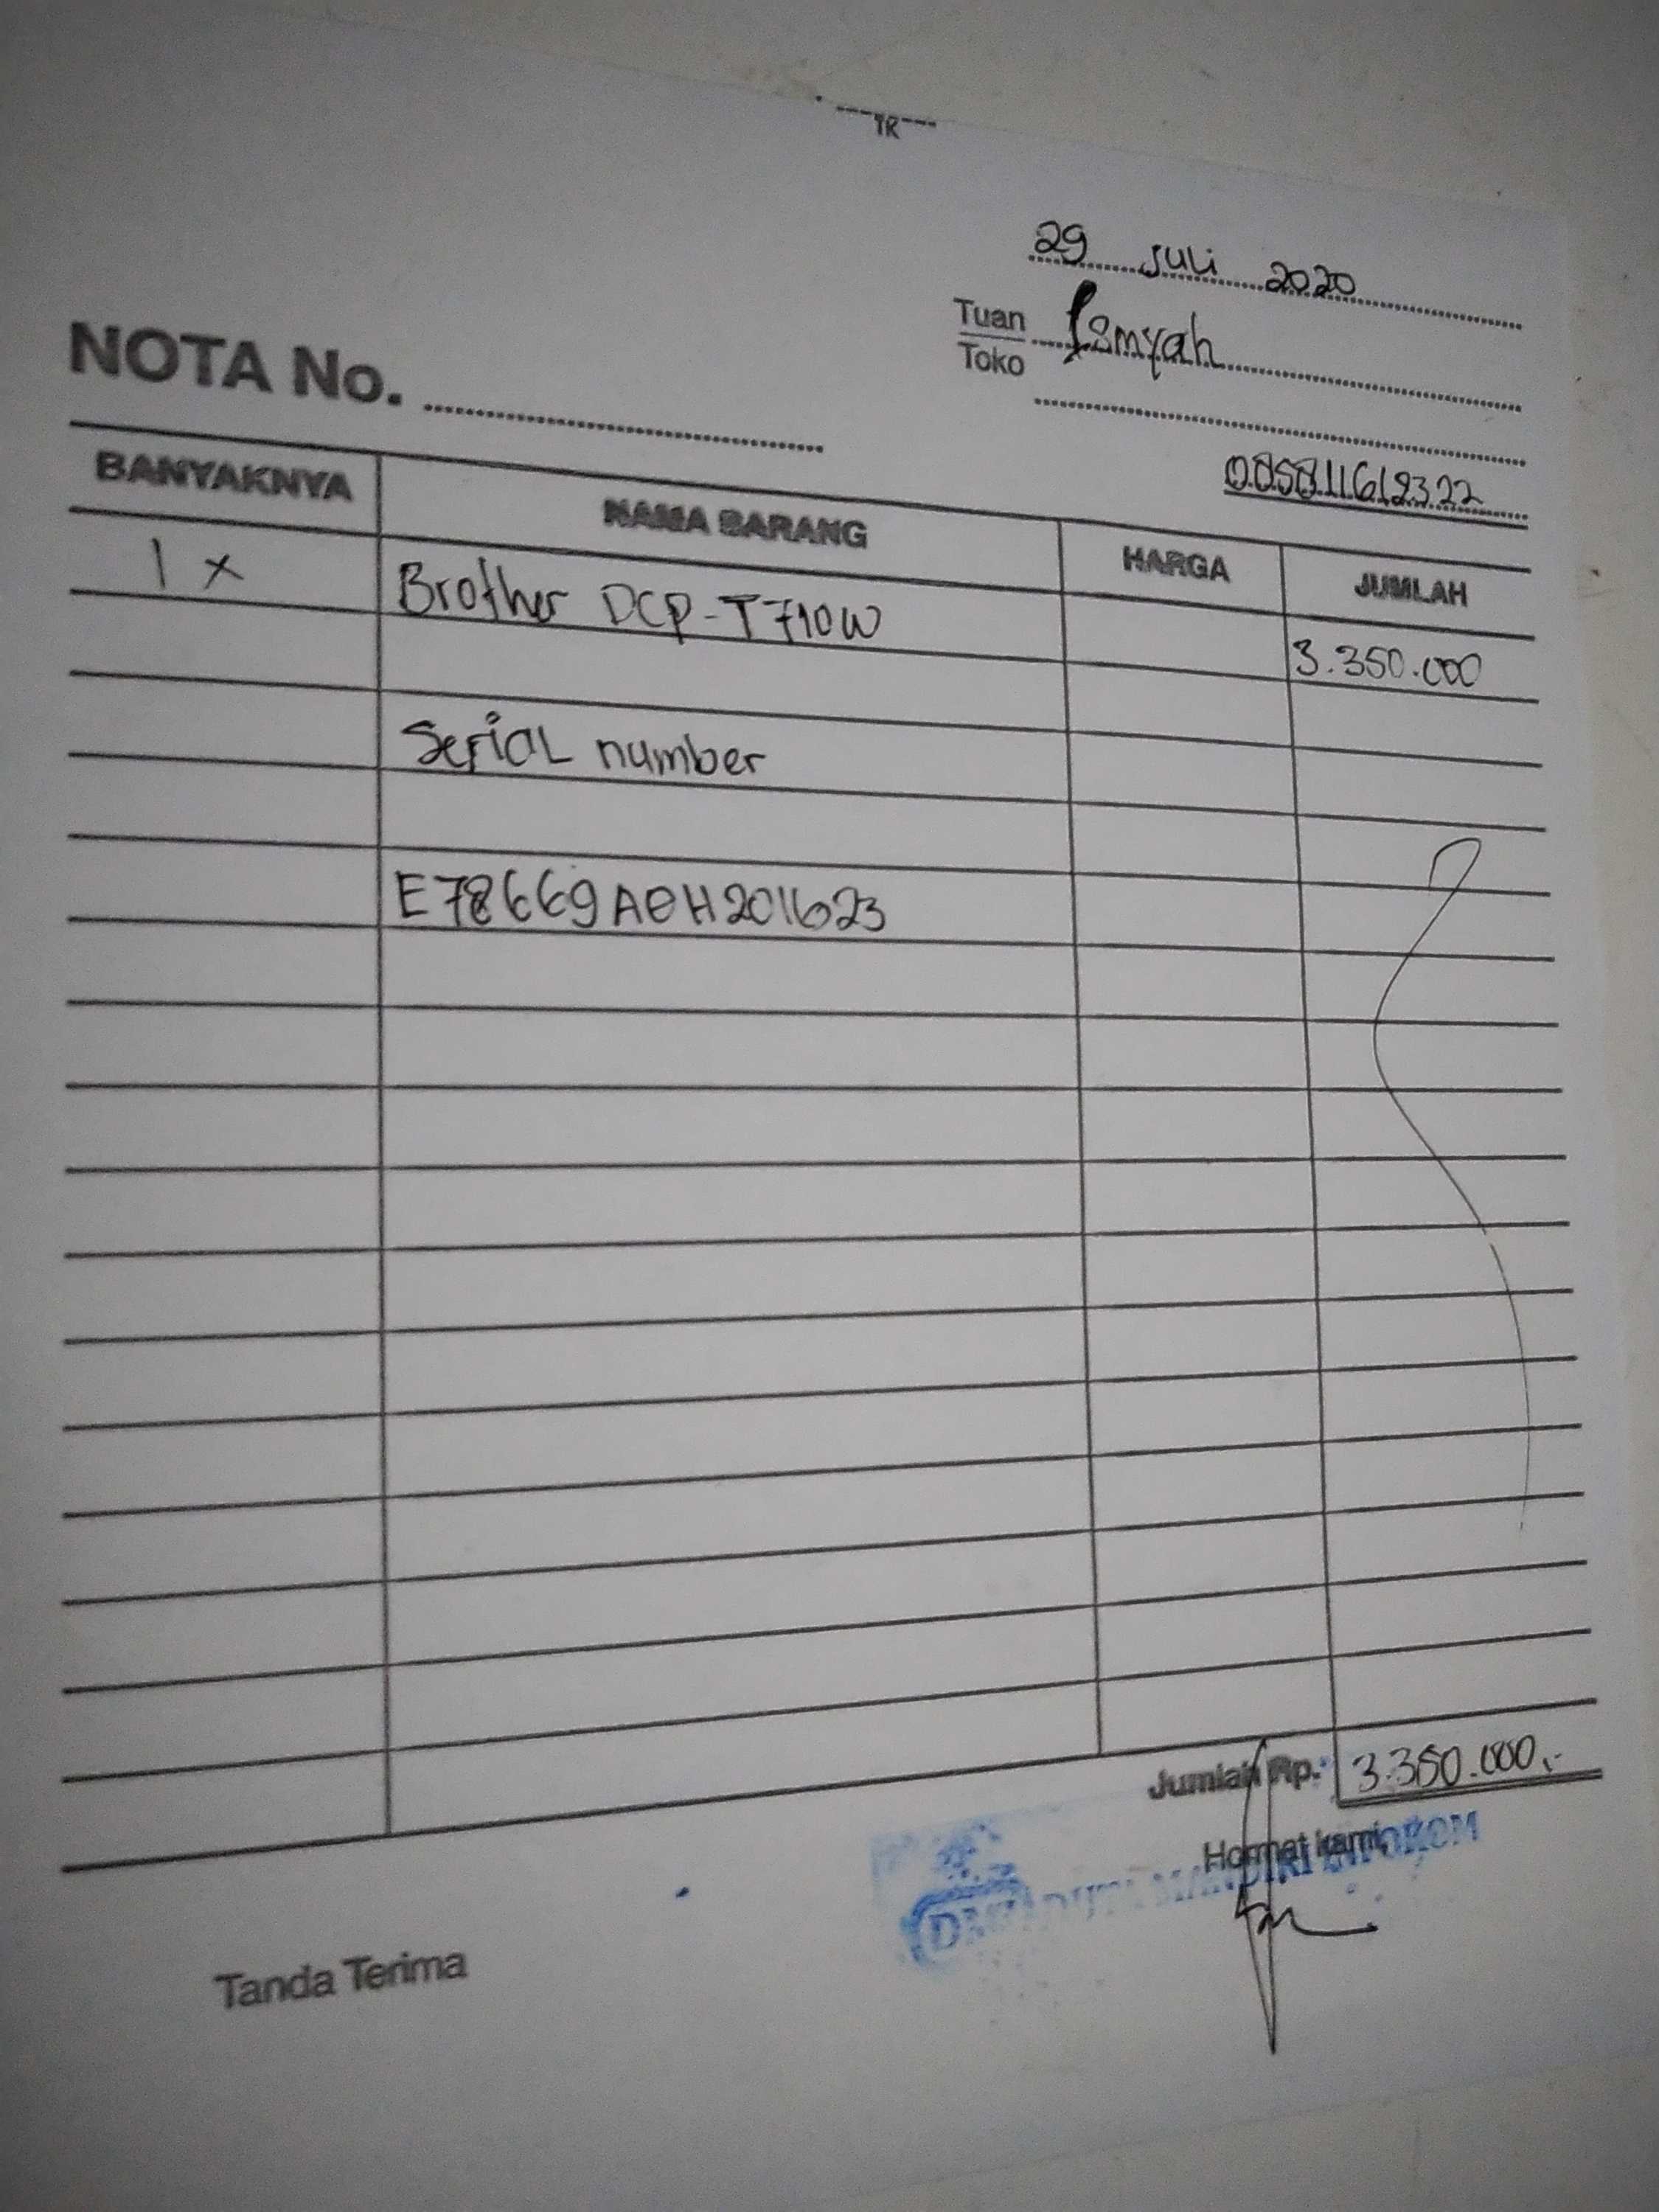 TR
29 Juli 2020
Tuan Ismyah
Toko
NOTA No.
085811612322
BANYAKNYA NAMA BARANG HARGA JUMLAH
1 x Brother DCP-T710W 3.350.000
Serial number
E78669A0H201623
Jumlah Rp. 3.350.000,-
Hormat kami,
MANDIRI INFOKOM
Tanda Terima